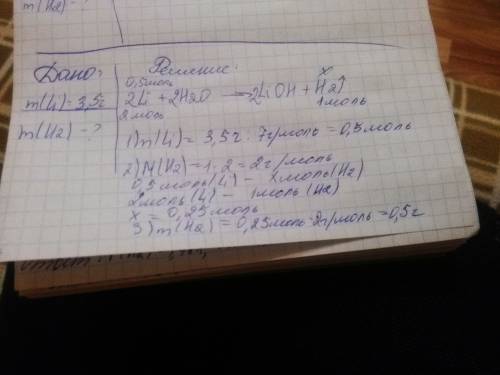 m(H2) - ?
Дано:
m(Li)=3,5г
m(H2) - ?
Решение:
0,5моль x
2Li + 2H2O → 2LiOH + H2↑
2моль 1моль
1) n(Li) = 3,5г : 7г/моль = 0,5моль
2) M(H2) = 1 · 2 = 2г/моль
0,5моль(Li) - xмоль(H2)
2моль(Li) - 1моль(H2)
x = 0,25моль
3) m(H2) = 0,25моль · 2г/моль = 0,5г